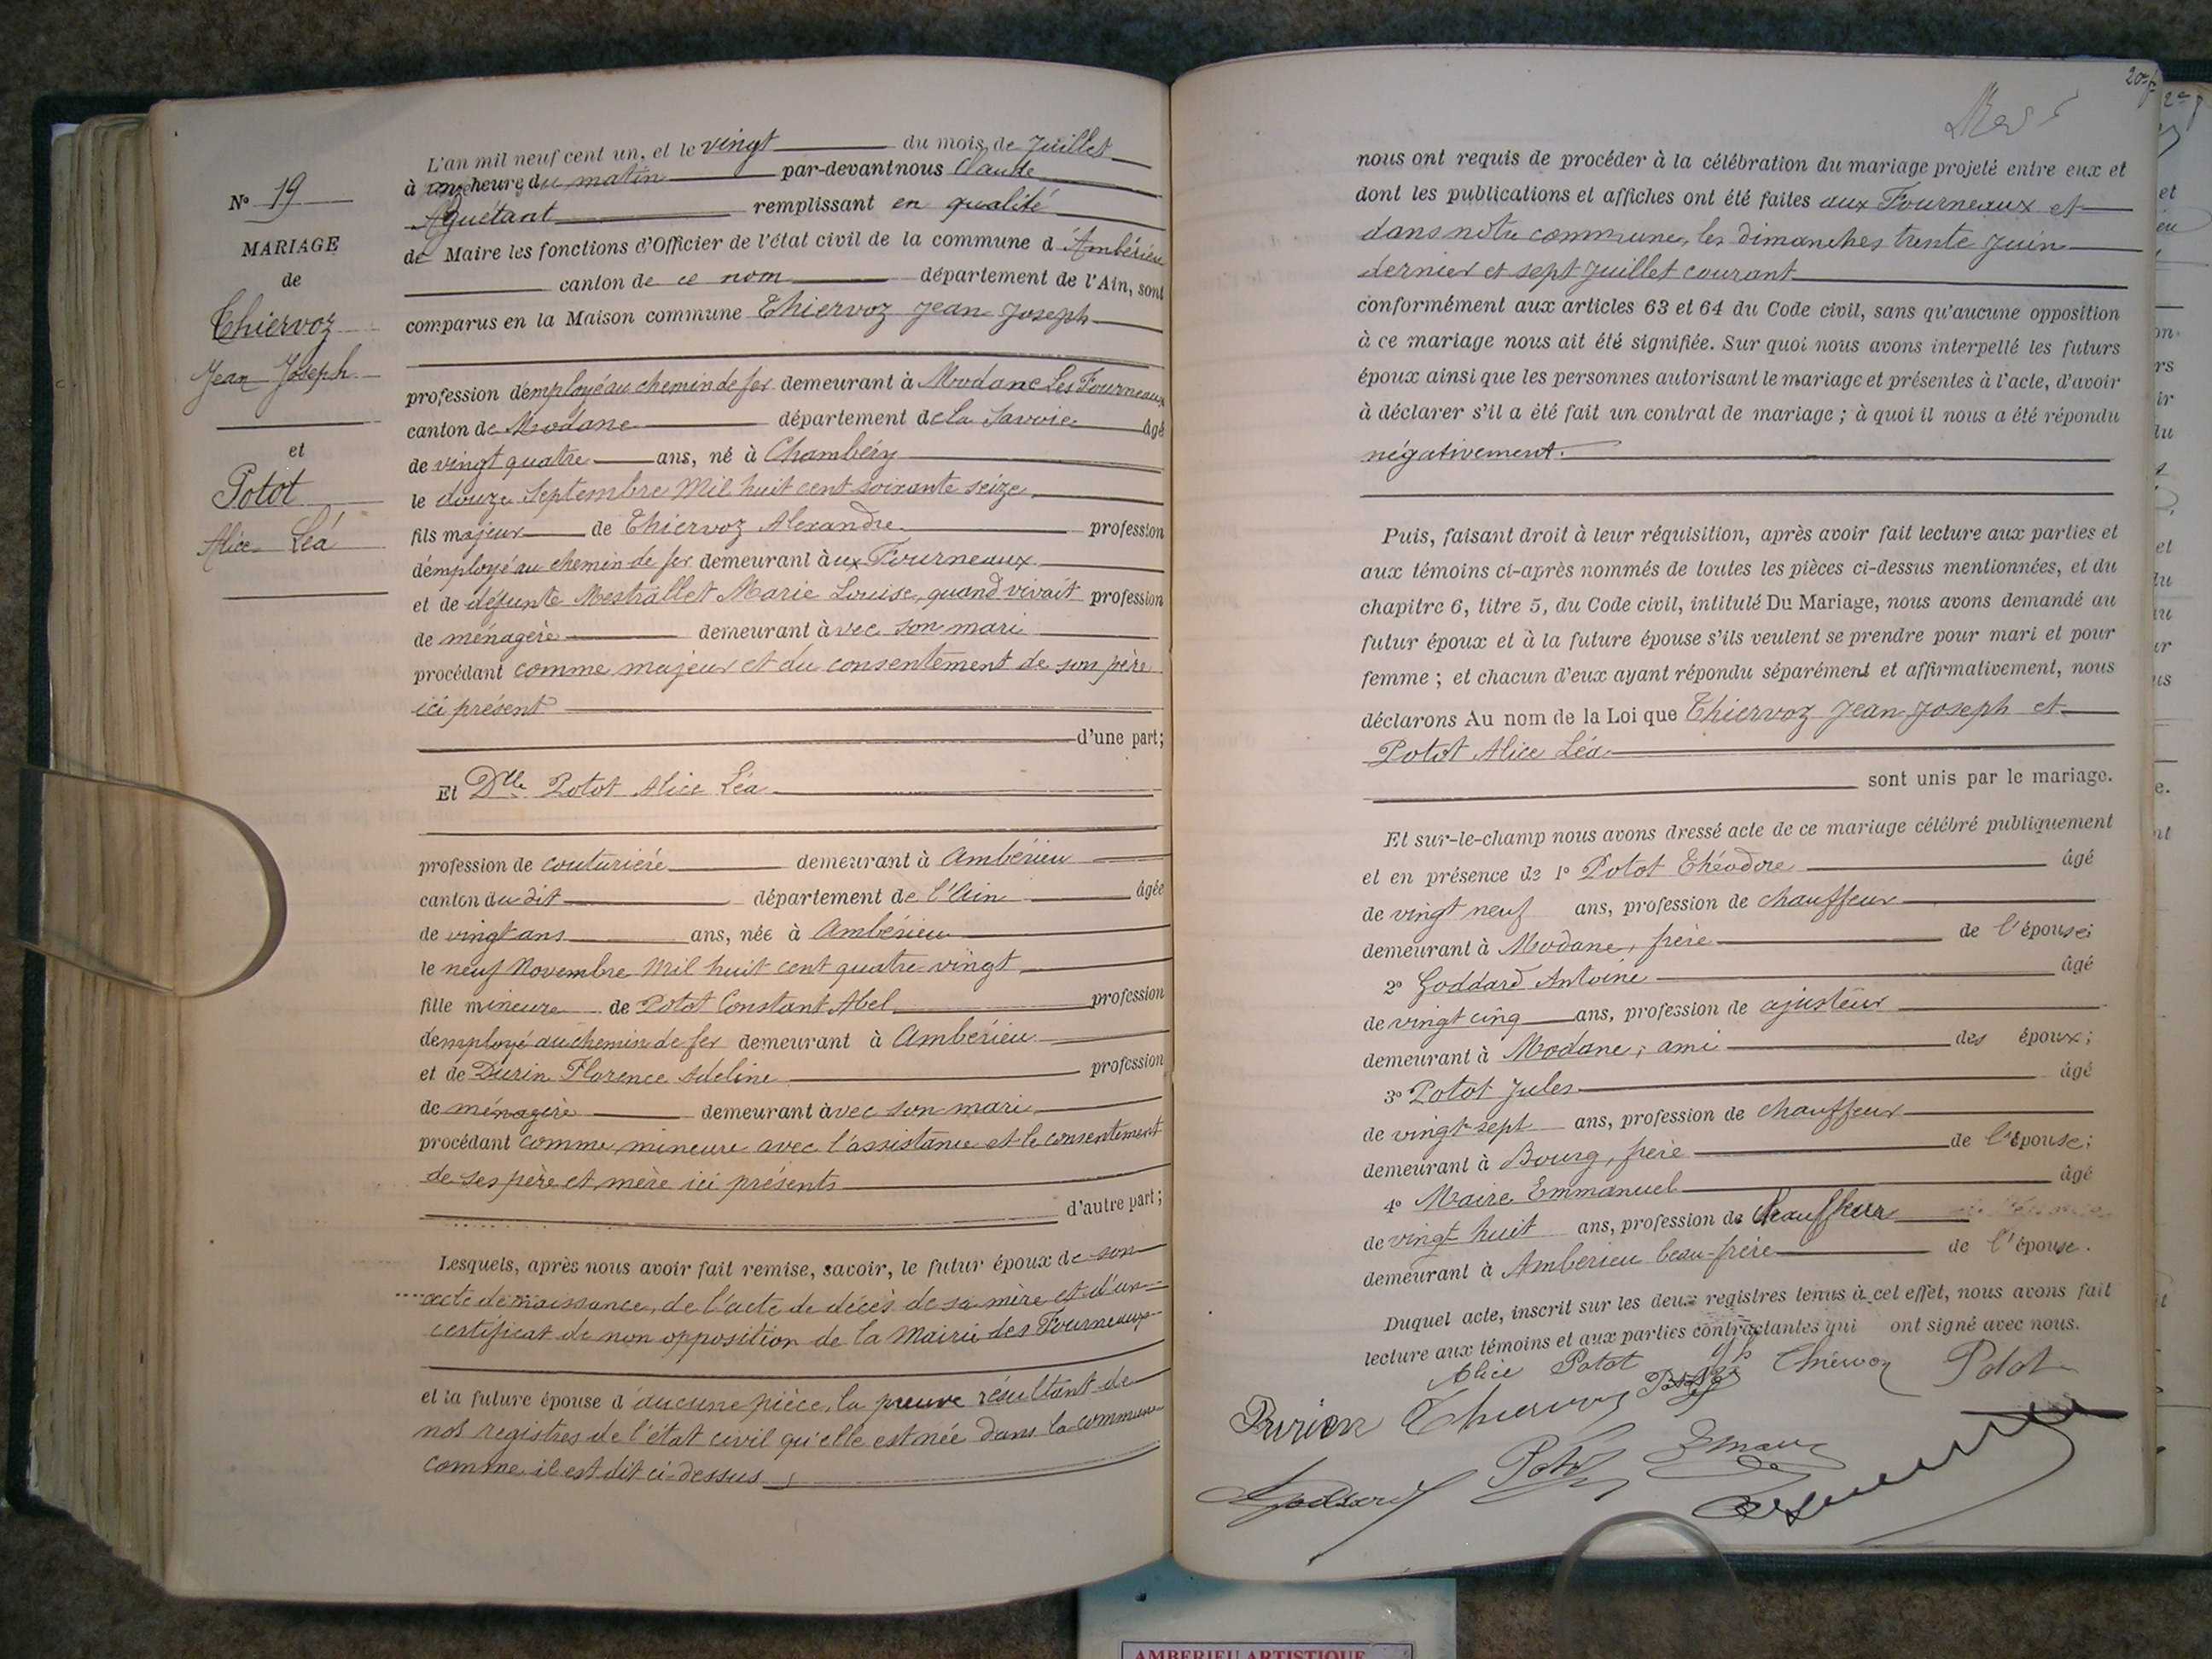 N° 19
MARIAGE
de
Thiervoz
Jean Joseph
et
Potot
Alice Léa
L'an mil neuf cent un, et le vingt du mois de Juillet
à onze heure du matin par-devant nous Claude
Aguétant remplissant en qualité
de Maire les fonctions d'Officier de l'état civil de la commune d'Ambérieu
canton de ce nom département de l'Ain, sont
comparus en la Maison commune Thiervoz Jean Joseph
profession d'employé au chemin de fer demeurant à Modane Les Fourneaux
canton de Modane département de la Savoie âgé
de vingt quatre ans, né à Chambéry
le douze Septembre Mil huit cent soixante seize
fils majeur de Thiervoz Alexandre profession
d'employé au chemin de fer demeurant aux Fourneaux
et de défunte Mestrallet Marie Louise, quand vivait profession
de ménagère demeurant avec son mari
procédant comme majeur et du consentement de son père
ici présent
d'une part;
Et Dlle Potot Alice Léa
profession de couturière demeurant à Ambérieu
canton du dit département de l'Ain âgée
de vingt ans ans, née à Ambérieu
le neuf Novembre Mil huit cent quatre vingt
fille mineure de Potot Constant Abel profession
d'employé au chemin de fer demeurant à Ambérieu
et de Durin Florence Adeline profession
de ménagère demeurant avec son mari
procédant comme mineure avec l'assistance et le consentement
de ses père et mère ici présents
d'autre part;
Lesquels, après nous avoir fait remise, savoir, le futur époux de son
acte de naissance, de l'acte de décès de sa mère et d'un
certificat de non opposition de la Mairie des Fourneaux
et la future épouse d'aucune pièce, la preuve résultant de
nos registres de l'état civil qu'elle est née dans la commune
comme il est dit ci-dessus
nous ont requis de procéder à la célébration du mariage projeté entre eux et
dont les publications et affiches ont été faites aux Fourneaux et
dans notre commune, les dimanches trente Juin
dernier et sept Juillet courant
conformément aux articles 63 et 64 du Code civil, sans qu'aucune opposition
à ce mariage nous ait été signifiée. Sur quoi nous avons interpellé les futurs
époux ainsi que les personnes autorisant le mariage et présentes à l'acte, d'avoir
à déclarer s'il a été fait un contrat de mariage ; à quoi il nous a été répondu
négativement.
Puis, faisant droit à leur réquisition, après avoir fait lecture aux parties et
aux témoins ci-après nommés de toutes les pièces ci-dessus mentionnées, et du
chapitre 6, titre 5, du Code civil, intitulé Du Mariage, nous avons demandé au
futur époux et à la future épouse s'ils veulent se prendre pour mari et pour
femme ; et chacun d'eux ayant répondu séparément et affirmativement, nous
déclarons Au nom de la Loi que Thiervoz Jean Joseph et
Potot Alice Léa
sont unis par le mariage.
Et sur-le-champ nous avons dressé acte de ce mariage célébré publiquement
et en présence de 1° Potot Théodore âgé
de vingt neuf ans, profession de chauffeur
demeurant à Modane, frère de l'épouse;
2° Goddard Antoine âgé
de vingt cinq ans, profession de ajusteur
demeurant à Modane, ami des époux;
3° Potot Jules âgé
de vingt-sept ans, profession de chauffeur
demeurant à Bourg, frère de l'épouse;
4° Maire Emmanuel âgé
de vingt huit ans, profession de chauffeur
demeurant à Amberieu beau-frère de l'épouse.
Duquel acte, inscrit sur les deux registres tenus à cet effet, nous avons fait
lecture aux témoins et aux parties contractantes qui ont signé avec nous.
Alice Potot Thiervoz Potot
Thiervoz
Potot
AMBERIEU ARTISTIQUE